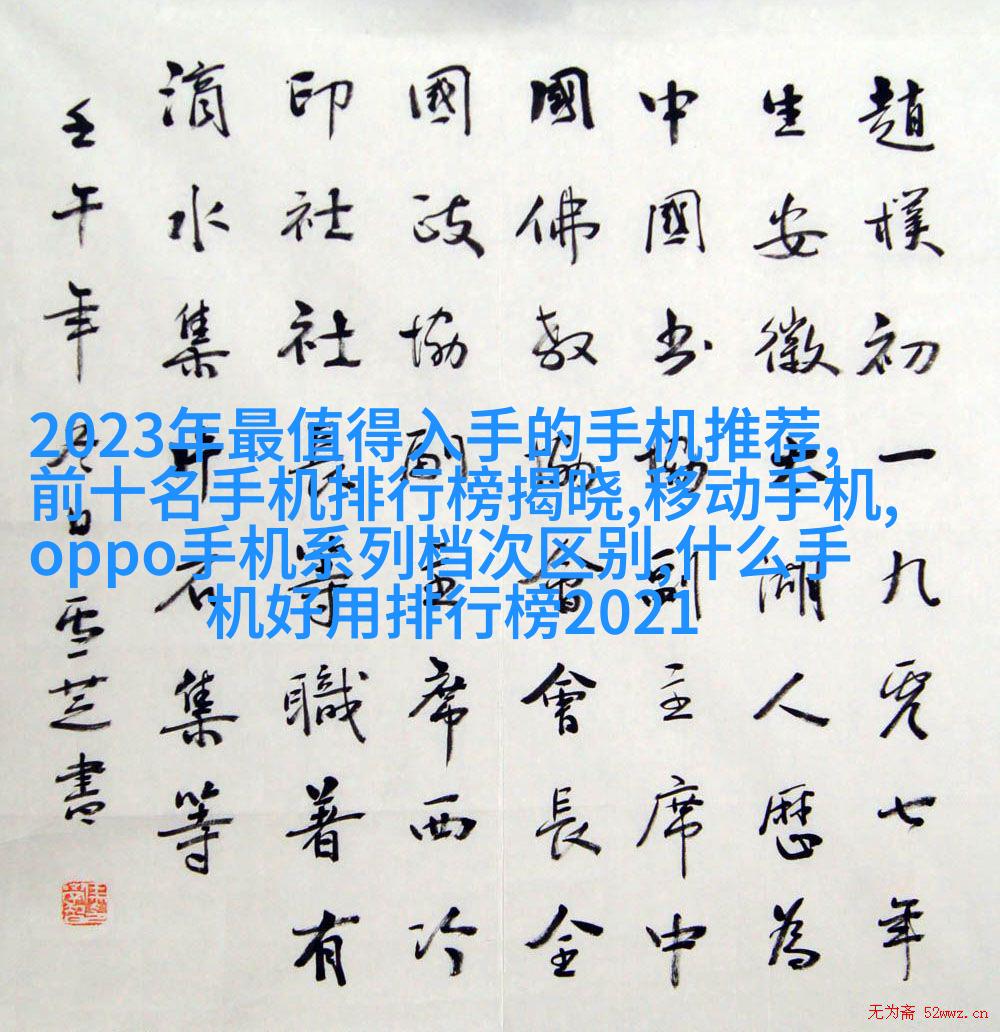 2023年最值得入手的手机推荐,
前十名手机排行榜揭晓,移动手机,
oppo手机系列档次区别,什么手
机好用排行榜2021
趙樸初一九零七年
生安徽太湖人歷為
中國書協副主席中
國佛教協會會長全
國政協副主席西冷
印社社長等職著有
滴水集片石集等
壬午年冬日雪芝書
无为斋 52wwz.cn